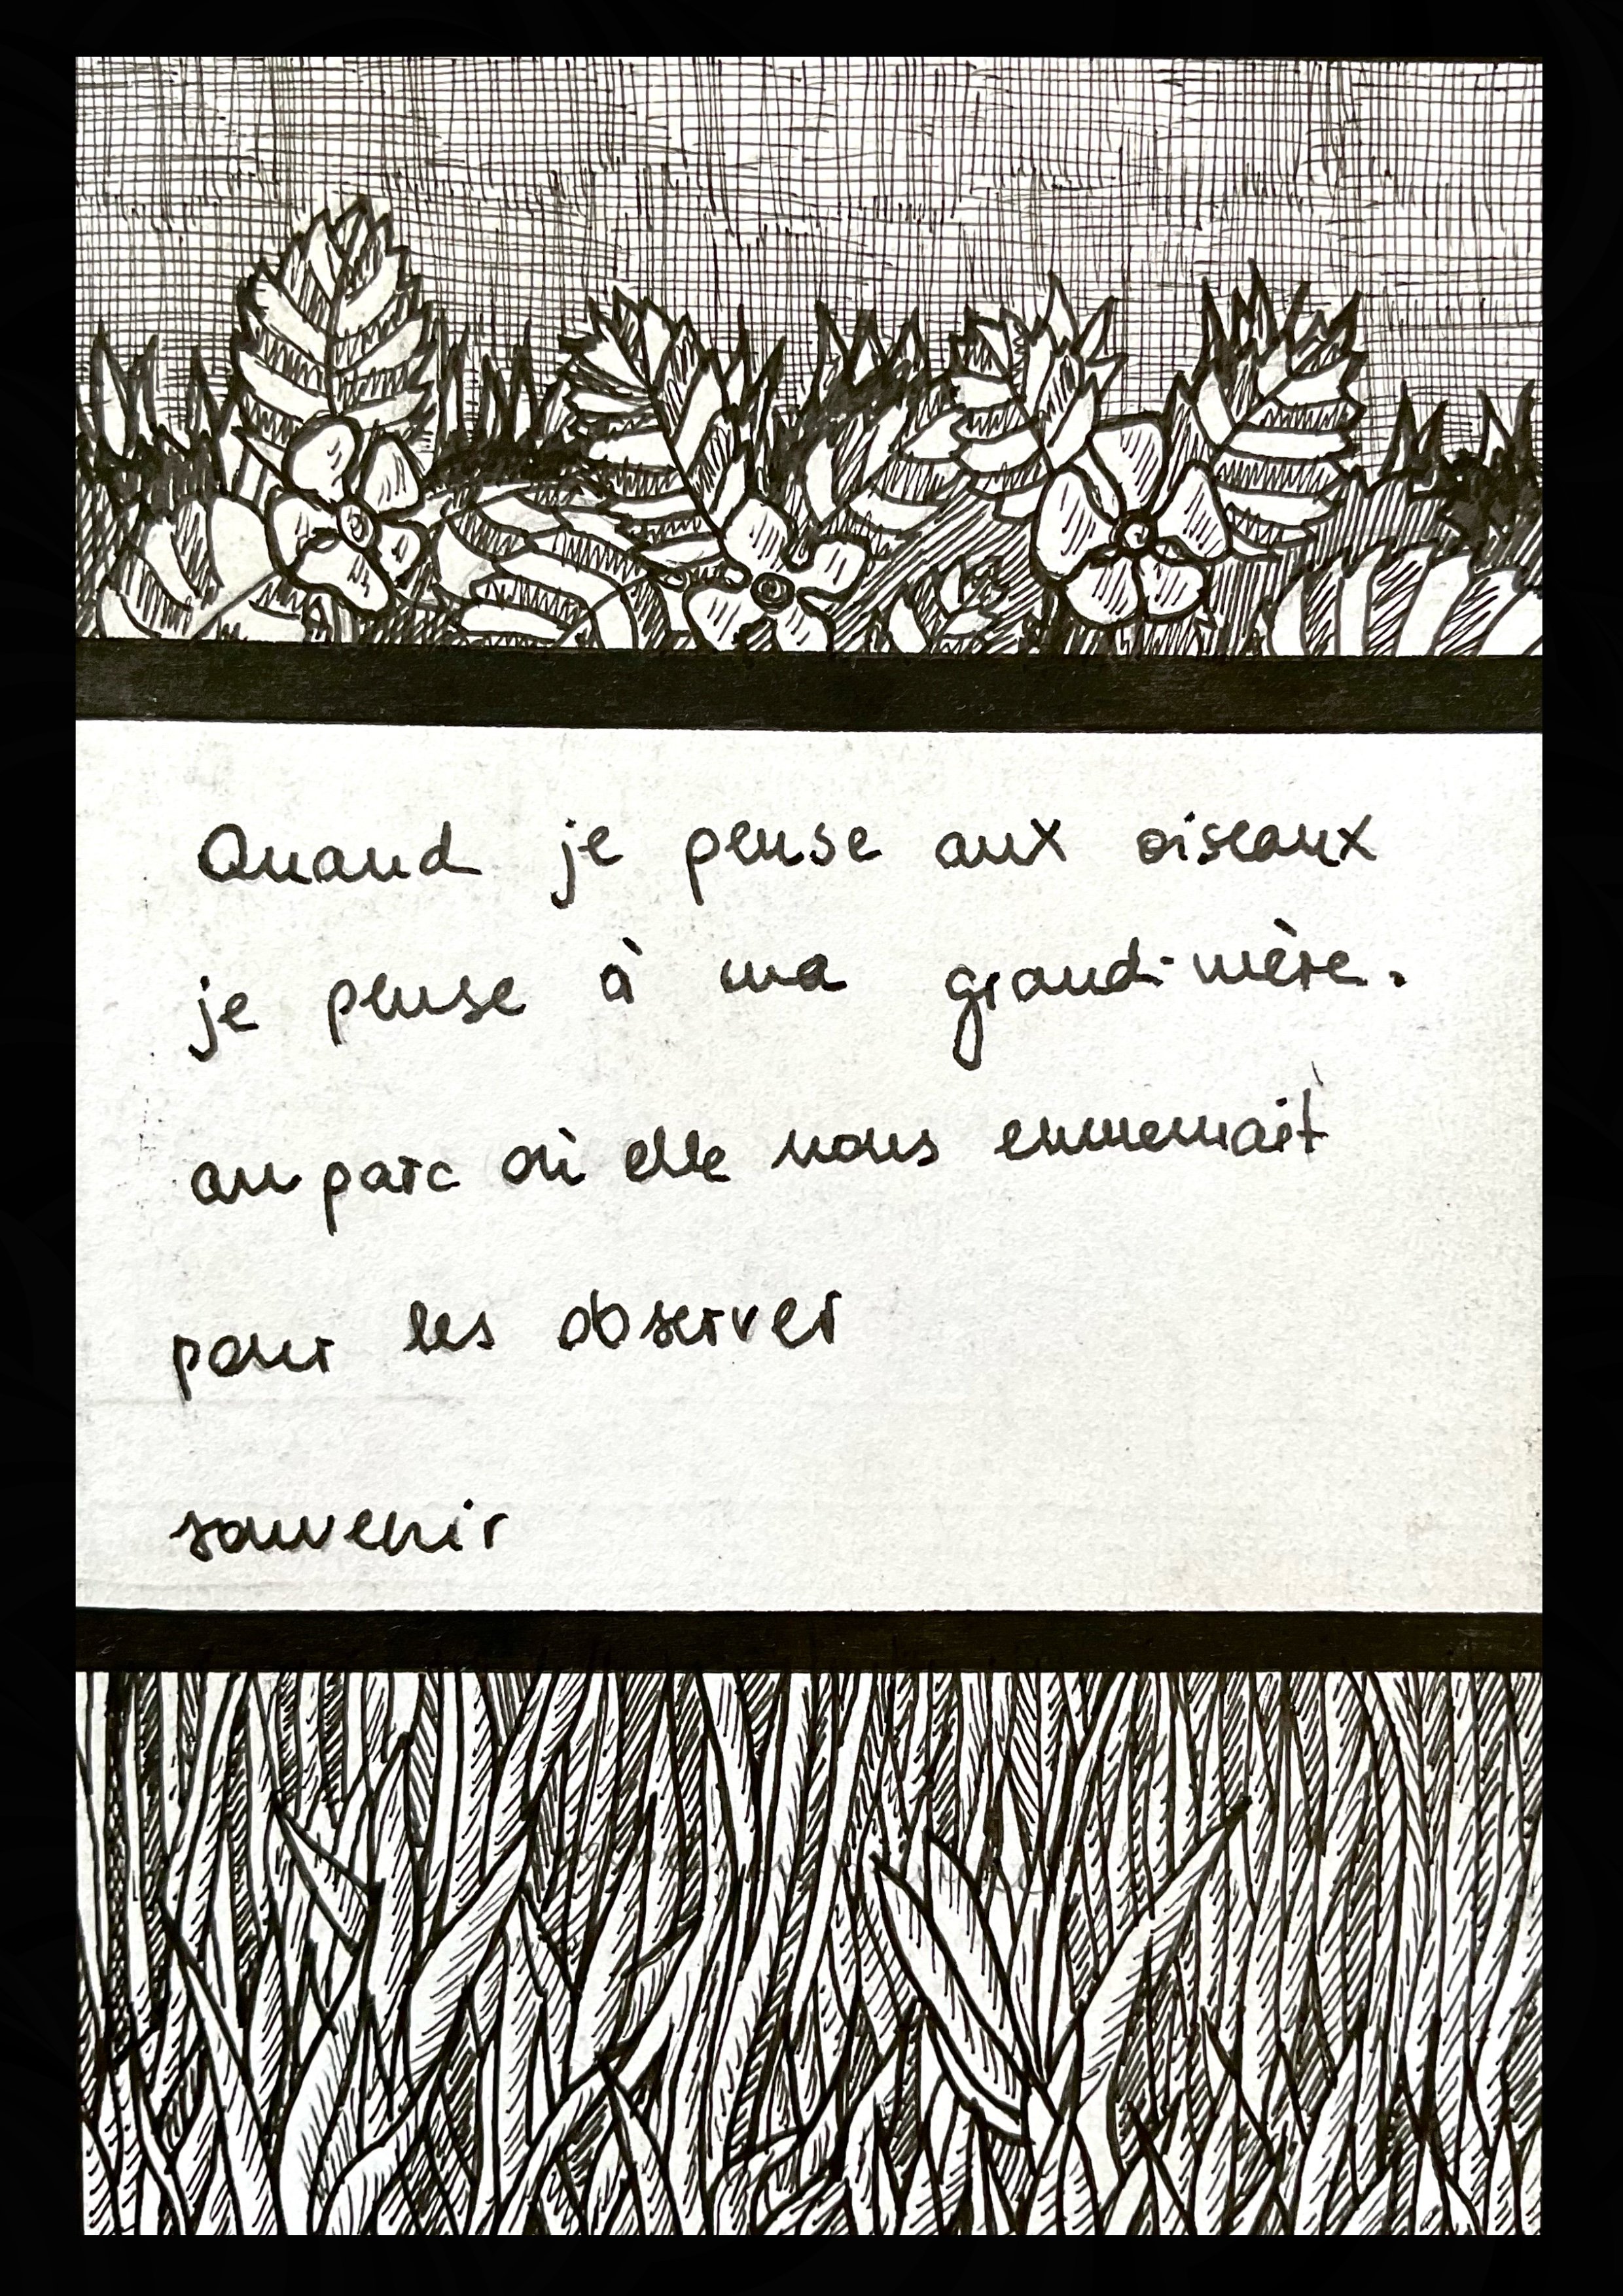 Quand je pense aux oiseaux
je pense à ma grand-mère.
au parc où elle nous emmenait
pour les observer
souvenir